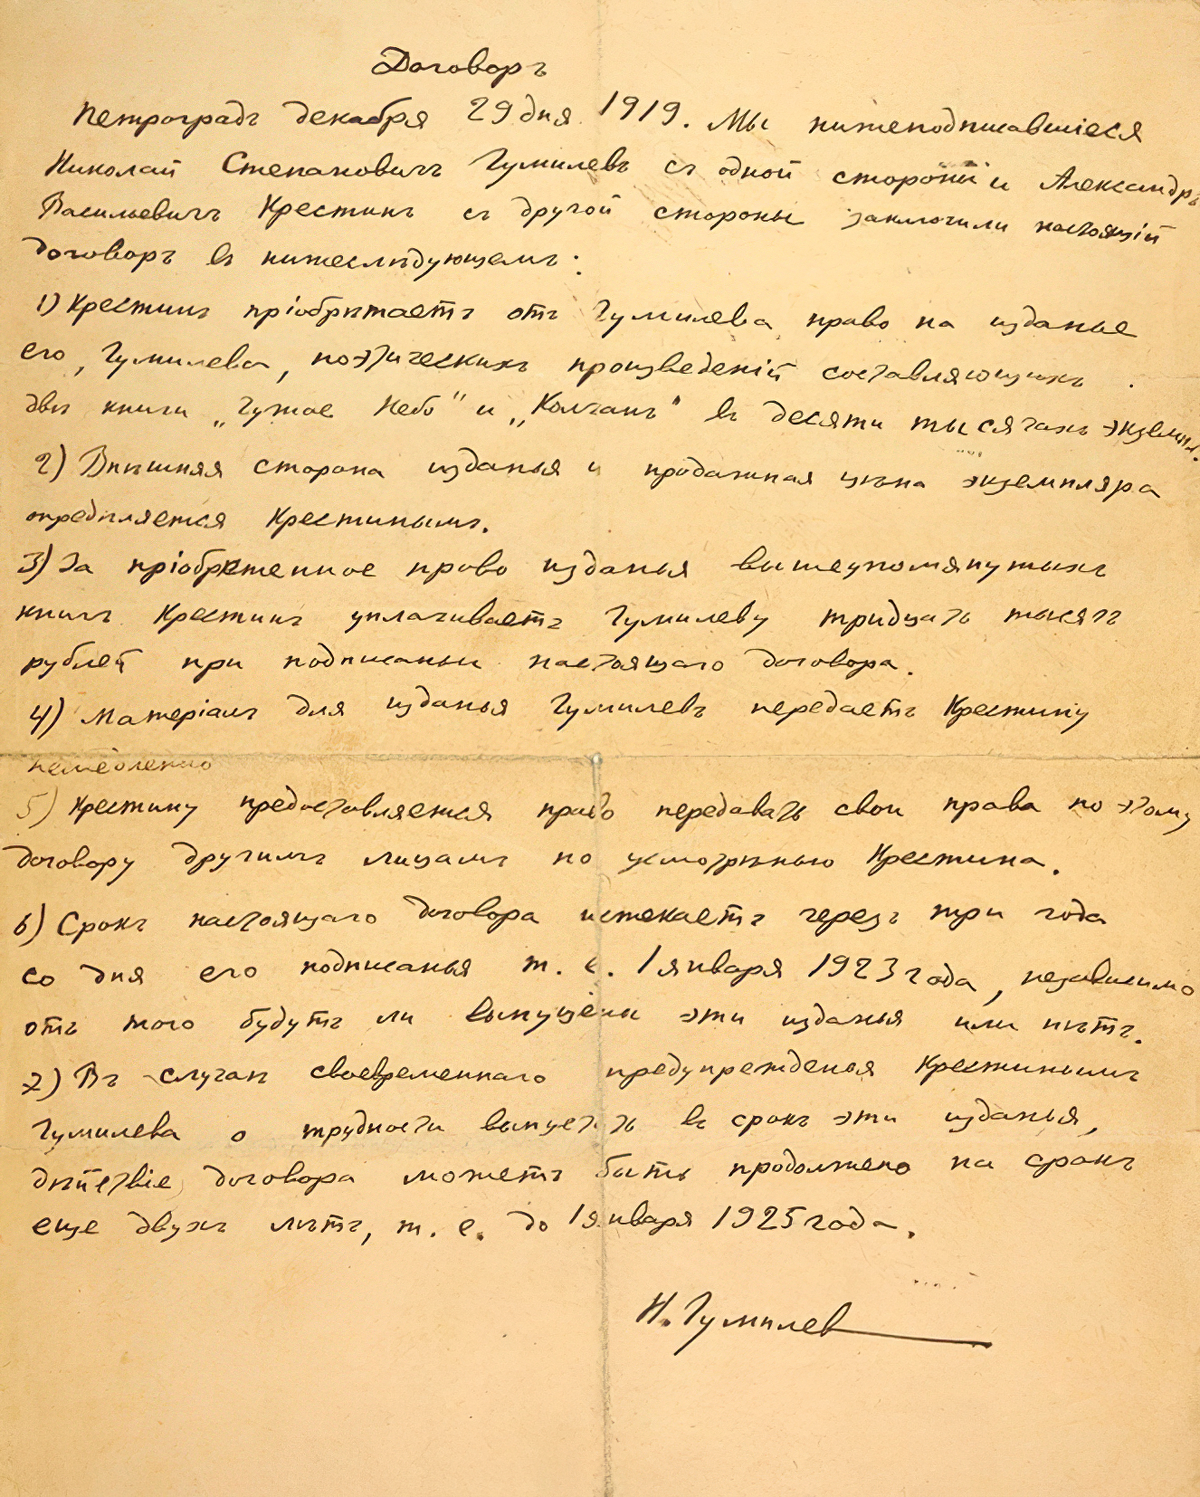 Договоръ
Петроградъ декабря 29 дня 1919. Мы нижеподписавшіеся
Николай Степановичъ Гумилевъ съ одной стороны и Александръ
Васильевичъ Крестинъ съ другой стороны заключили настоящій
договоръ въ нижеслѣдующемъ:
1) Крестинъ пріобрѣтаетъ отъ Гумилева право на изданье
его, Гумилева, поэтическихъ произведеній составляющихъ
двѣ книги „Чужое Небо" и „Колчанъ" въ десяти тысячахъ экземпл.
2) Внѣшняя сторона изданья и продажная цѣна экземпляра
опредѣляется Крестинымъ.
3) За пріобрѣтенное право изданья вышеупомянутыхъ
книгъ Крестинъ уплачиваетъ Гумилеву тридцать тысячъ
рублей при подписаньи настоящаго договора.
4) Матеріалъ для изданья Гумилевъ передаетъ Крестину
немедленно
5) Крестину предоставляется право передавать свои права по этому
договору другимъ лицамъ по усмотрѣнью Крестина.
6) Срокъ настоящаго договора истекаетъ черезъ три года
со дня его подписанья т. е. 1 января 1923 года, независимо
отъ того будутъ ли выпущены эти изданья или нѣтъ.
7) Въ случаѣ своевременнаго предупрежденья Крестинымъ
Гумилева о трудности выпустить въ срокъ эти изданья,
дѣйствіе договора можетъ быть продолжено на срокъ
еще двухъ лѣтъ, т. е. до 1 января 1925 года.
Н. Гумилев